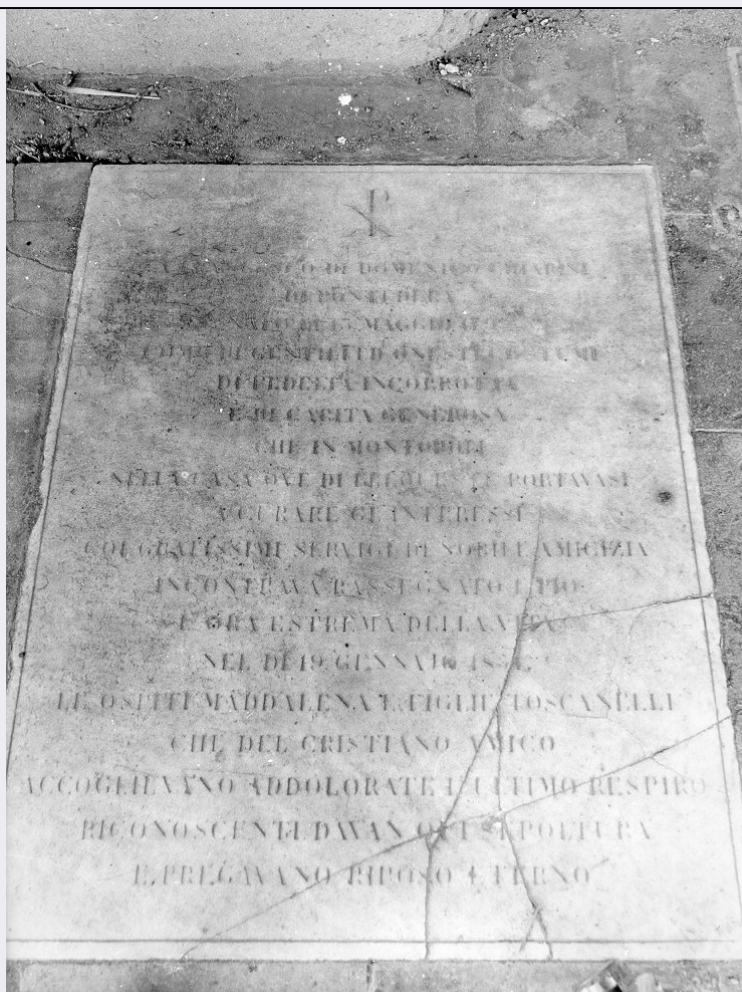 DI DOMENICO CHIARINI
DI PONTEDERA
NATO DI 15 MAGGIO
DI GENTILI ED ONESTI COSTUMI
DI FEDELTÀ INCORROTTA
E DI CARITÀ GENEROSA
CHE IN MONTOPOLI
NELLA CASA OVE DI FREQUENTE PORTAVASI
A CURARE GL'INTERESSI
COI GRATISSIMI SERVIGI DI NOBILE AMICIZIA
INCONTRAVA RASSEGNATO E PIO
L'ORA ESTREMA DELLA VITA
NEL DI 19 GENNAIO
LE OSPITI MADDALENA E FIGLIE TOSCANELLI
CHE DEL CRISTIANO AMICO
ACCOGLIEVANO ADDOLORATE L'ULTIMO RESPIRO
RICONOSCENTI DAVAN QUI SEPOLTURA
E PREGAVANO RIPOSO ETERNO